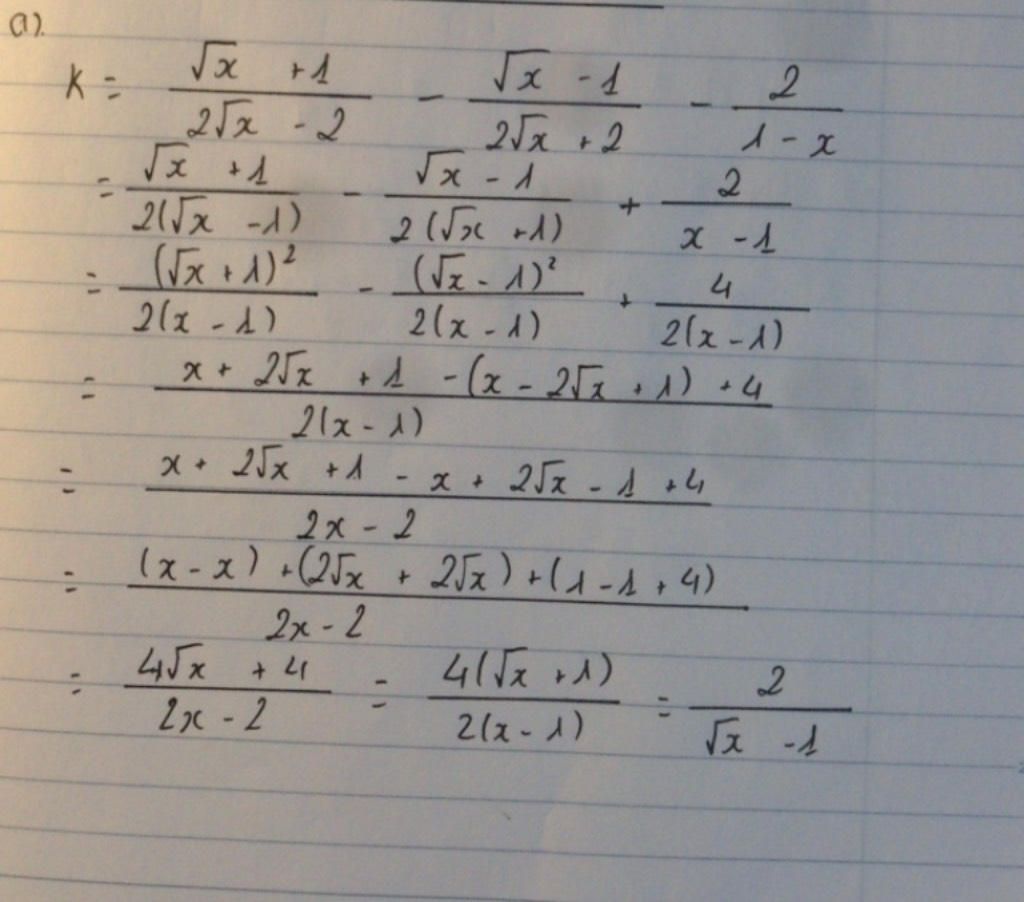 a).
K = (√x + 1)/(2√x - 2) - (√x - 1)/(2√x + 2) - 2/(1 - x)
= (√x + 1)/(2(√x - 1)) - (√x - 1)/(2(√x + 1)) + 2/(x - 1)
= (√x + 1)²/(2(x - 1)) - (√x - 1)²/(2(x - 1)) + 4/(2(x - 1))
= (x + 2√x + 1 - (x - 2√x + 1) + 4)/(2(x - 1))
= (x + 2√x + 1 - x + 2√x - 1 + 4)/(2x - 2)
= ((x - x) + (2√x + 2√x) + (1 - 1 + 4))/(2x - 2)
= (4√x + 4)/(2x - 2) = (4(√x + 1))/(2(x - 1)) = 2/(√x - 1)